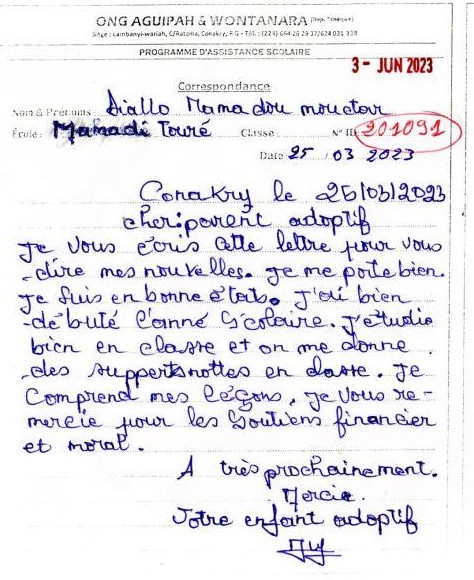 ONG AGUIPAH & WONTANARA (Rep. Tchèque)
Siège : Lambanyi-wariah, C/Ratoma, Conakry, RG - Tél. : (224) 664 26 29 37/624 031 308
PROGRAMME D'ASSISTANCE SCOLAIRE
3 - JUN 2023
Correspondance
Nom & Prénoms : Diallo Mamadou mouctar
École : Mamadi Touré Classe : N° ID 201091
Date 25 / 03 2023
Conakry le 25/03/2023
cheriparent adoptif
Je vous écris cette lettre pour vous
-dire mes nouvelles. Je me porte bien.
Je suis en bonne étato. J'ai bien
-débuté l'anné Scolaire. J'étudie
bien en classe et on me donne
-des supportsnottes en classe. Je
Comprend mes leçons, je vous re-
mercie pour les Soutiens financier
et moral.
A très prochainement.
Mercie.
Votre enfant adoptif